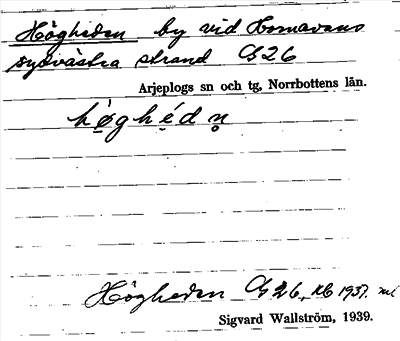 Högheden by vid Hornavans
sydvästra strand G26
Arjeplogs sn och tg, Norrbottens län.
hø̀ghédn̥
Högheden G26, KB 1937.
Sigvard Wallström, 1939.